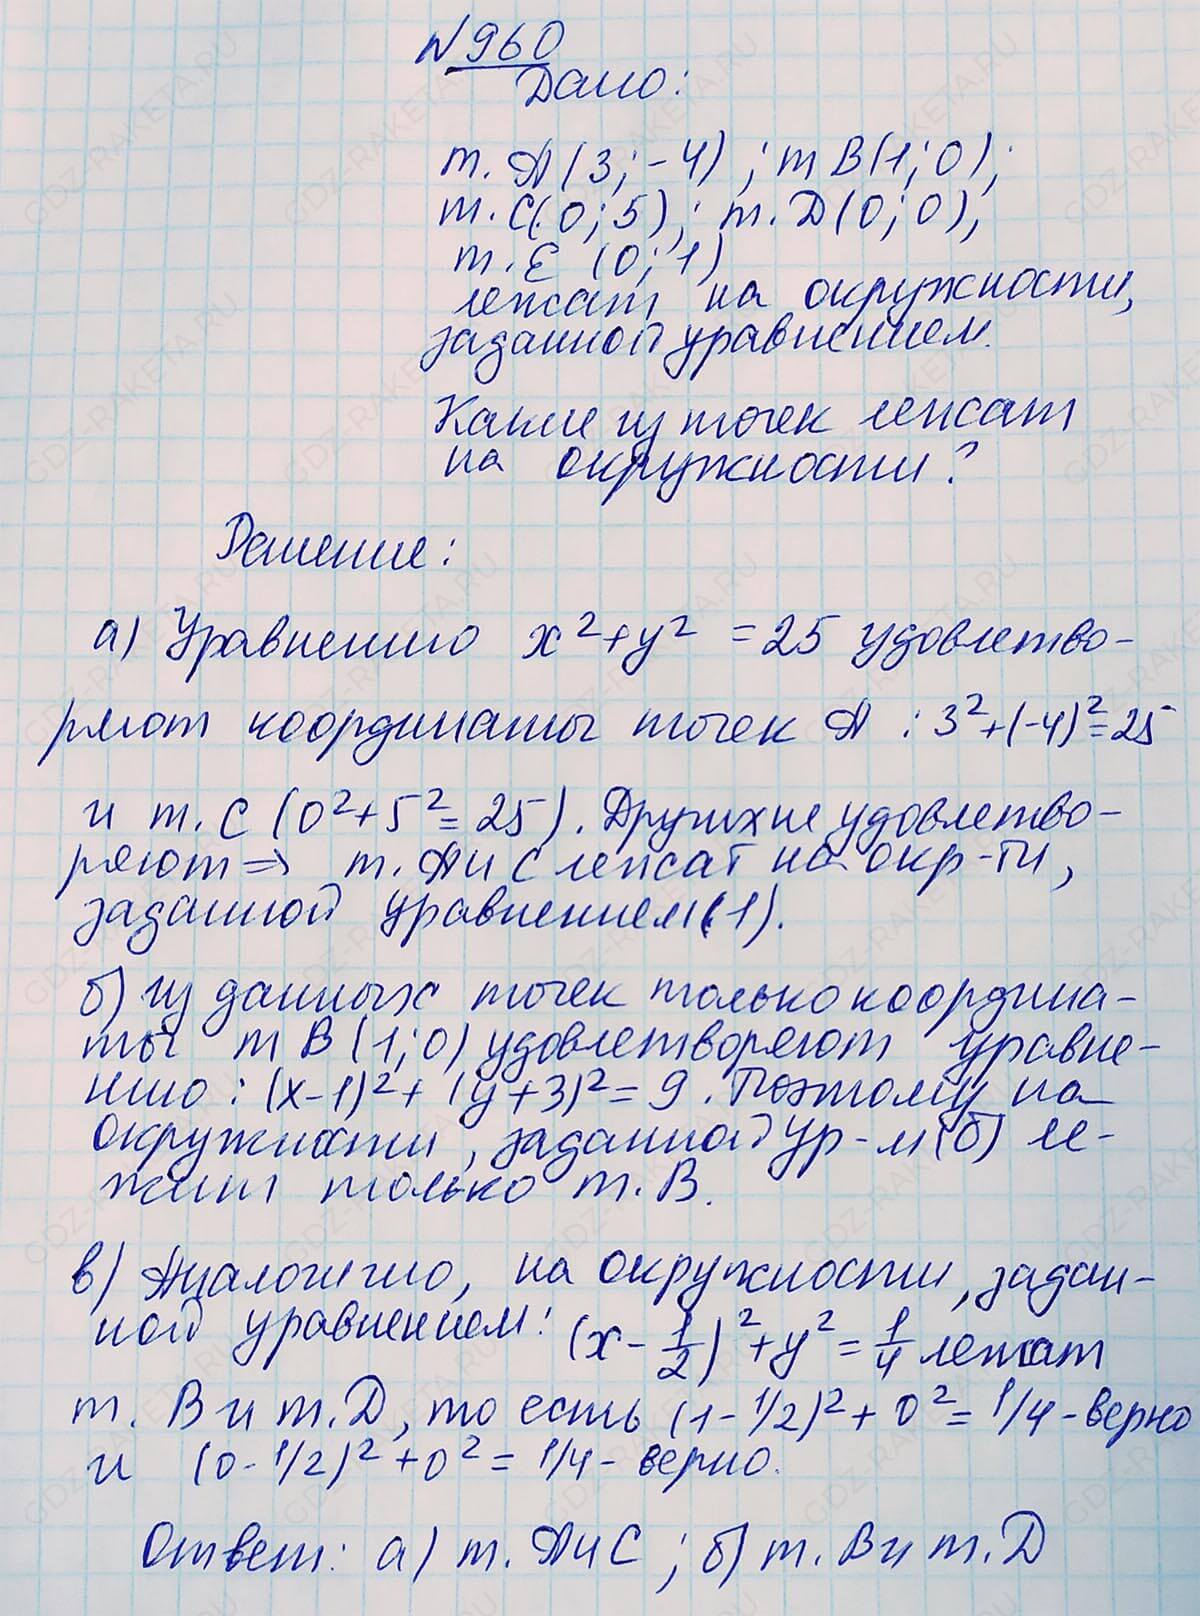 №960
Дано:
т. А (3; -4) ; т В(1; 0);
т. С(0; 5); т. D(0; 0),
т. Е (0; 1)
лежат на окружности,
заданной уравнением.
Какие из точек лежат
на окружности?
Решение:
а) Уравнению x²+y² = 25 удовлетво-
ряют координаты точек А : 3²+(-4)²=25
и т. С (0²+5²=25). Другие не удовлетво-
ряют ⇒ т. А и С лежат на окр-ти,
заданной уравнением (1).
б) из данных точек только координа-
ты т В (1; 0) удовлетворяют уравне-
нию : (x-1)²+ (y+3)²=9. Поэтому на
окружности, заданной ур-м (б) ле-
жит только т. В.
в) Аналогично, на окружности, задан-
ной уравнением: (x - 1/2)²+y²=1/4 лежат
т. В и т. D, то есть (1-1/2)²+ 0²= 1/4-верно
и (0-1/2)²+0²= 1/4- верно.
Ответ: а) т. А и С ; б) т. В и т. D
GDZ-RAKETA.RU